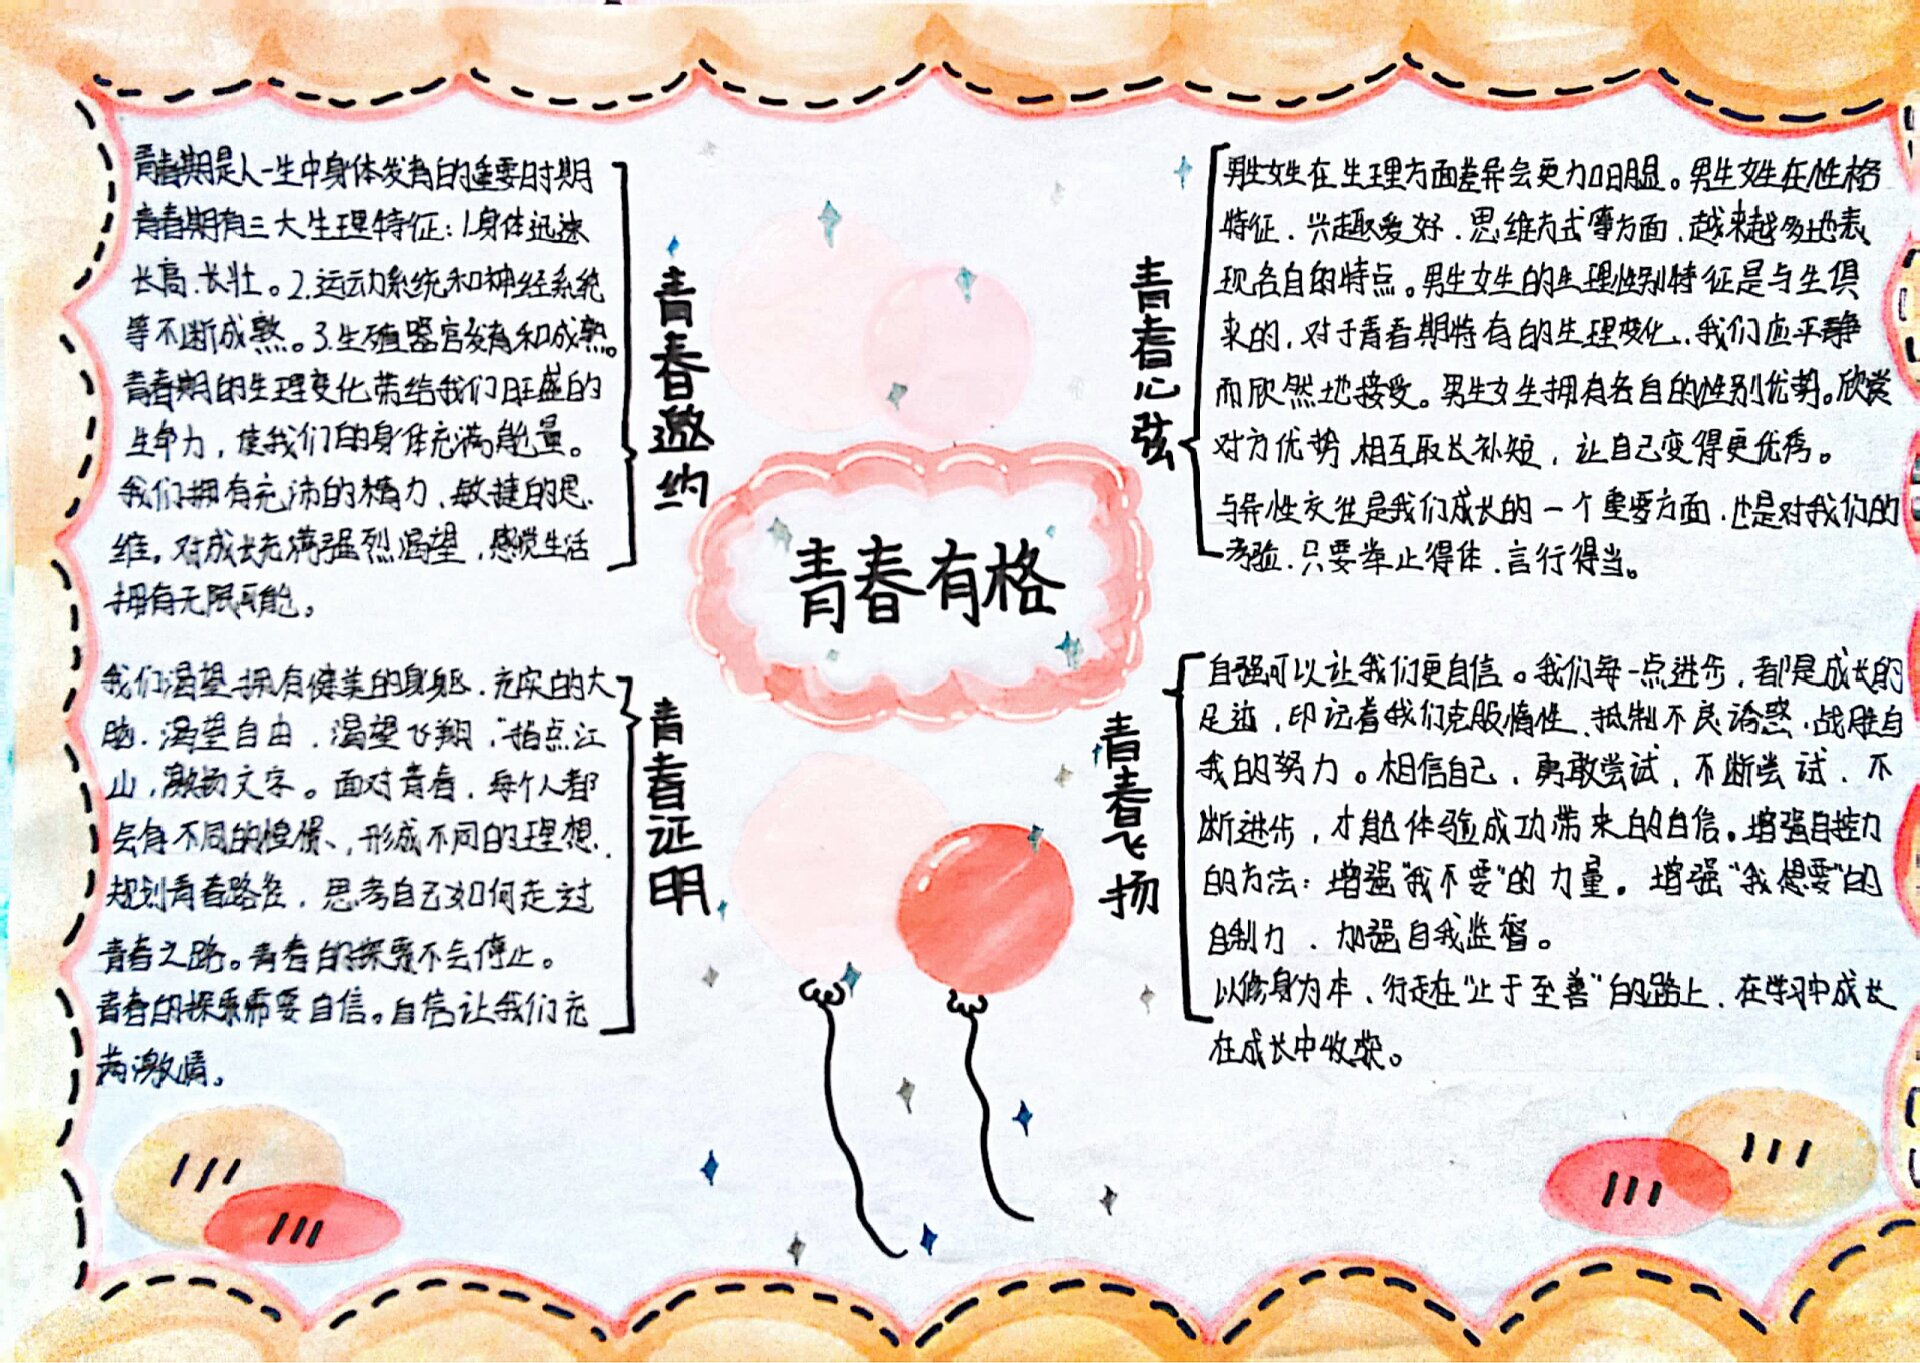 青春期是人一生中身体发育的重要时期
青春期有三大生理特征：1.身体迅速
长高、长壮。2.运动系统和神经系统
等不断成熟。3.生殖器官发育和成熟。
青春期的生理变化带给我们旺盛的
生命力，使我们的身体充满能量。
我们拥有充沛的精力、敏捷的思
维。对成长充满强烈渴望，感觉生活
拥有无限可能。
青春邀约
我们渴望拥有健美的身躯、充实的大
脑、渴望自由，渴望飞翔，“指点江
山，激扬文字。面对青春，每个人都
会有不同的憧憬、形成不同的理想、
规划青春路径，思考自己如何走过
青春之路。青春的探索不会停止。
青春的探索需要自信。自信让我们充
满激情。
青春证明
青春有格
青春心弦
男生女生在生理方面差异会更加明显。男生女生在性格
特征、兴趣爱好、思维方式等方面，越来越多地表
现各自的特点。男生女生的生理性别特征是与生俱
来的，对于青春期特有的生理变化，我们应平静
而欣然地接受。男生女生拥有各自的性别优势。欣赏
对方优势，相互取长补短，让自己变得更优秀。
与异性交往是我们成长的一个重要方面，也是对我们的
考验，只要举止得体、言行得当。
青春飞扬
自强可以让我们更自信。我们每一点进步，都是成长的
足迹，印记着我们克服惰性、抵制不良诱惑、战胜自
我的努力。相信自己，勇敢尝试，不断尝试、不
断进步，才能体验成功带来的自信。增强自控力
的方法：增强“我不要”的力量。增强“我想要”的
自制力、加强自我监督。
以修身为本、行走在“止于至善”的路上，在学习中成长
在成长中收获。